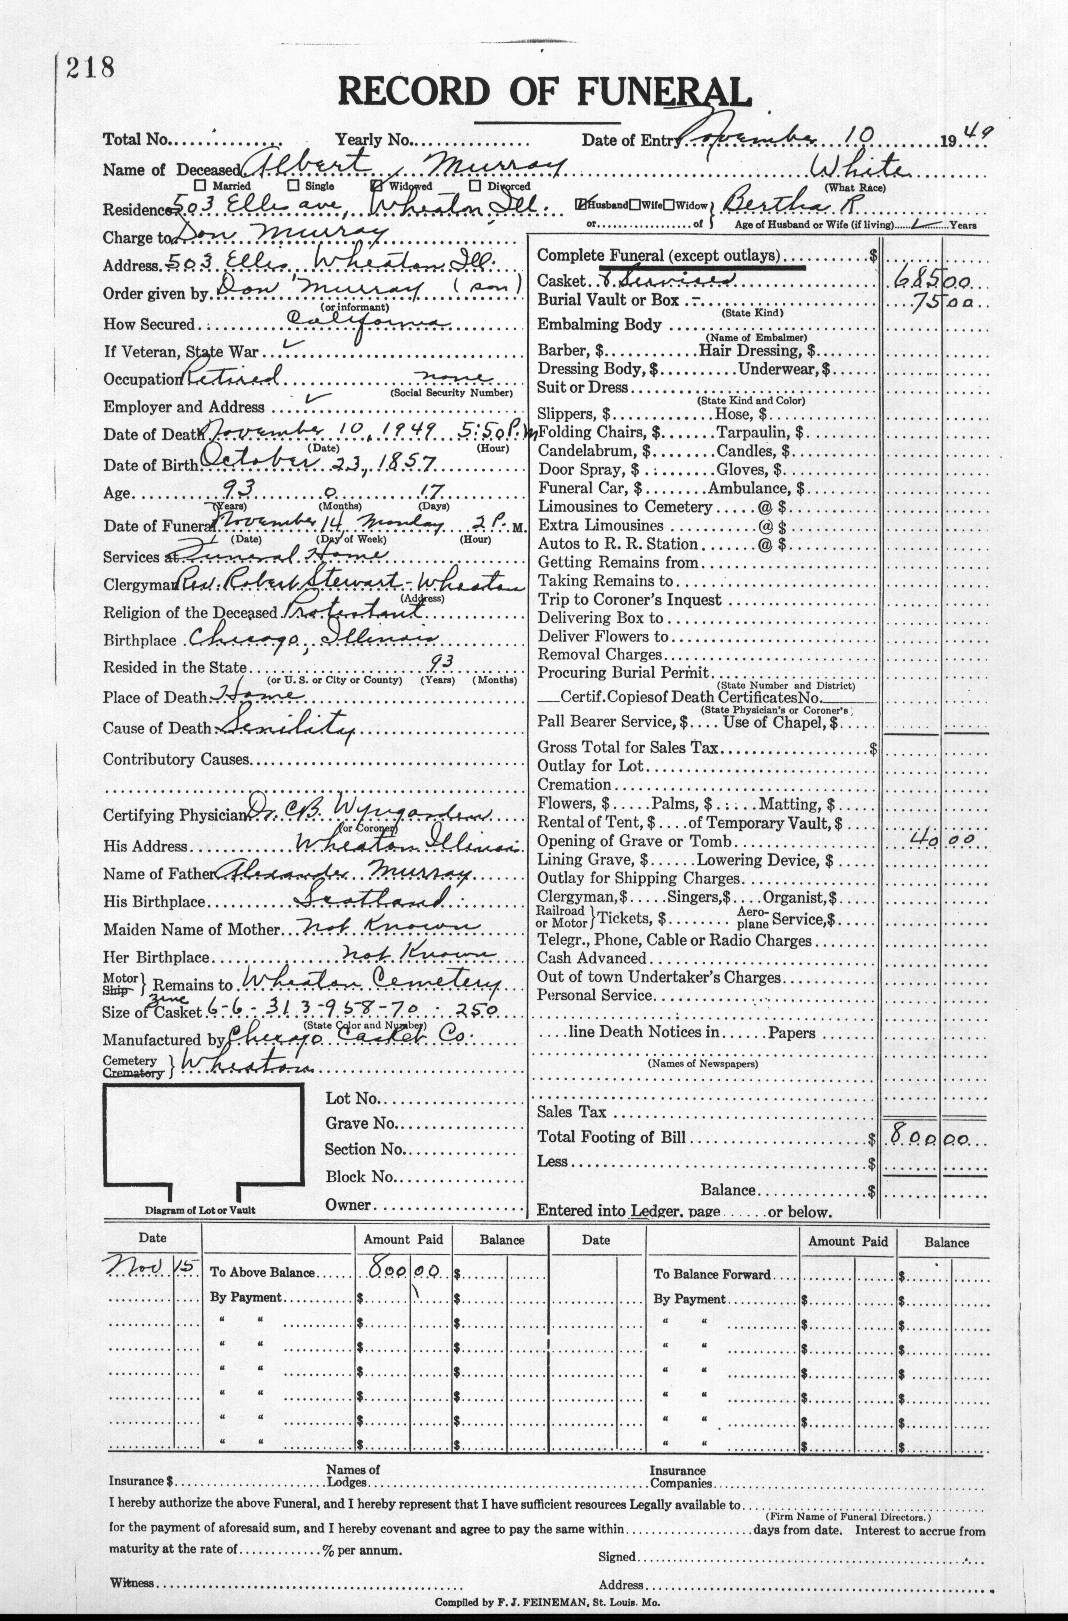 218
RECORD OF FUNERAL
Total No. Yearly No. Date of Entry November 10 1949
Name of Deceased Albert Murray White
Married Single Widowed Divorced (What Race)
Residence 503 Ellis ave, Wheaton Ill. Husband Wife Widow } Bertha R
or of } Age of Husband or Wife (if living) Years
Charge to Don Murray
Address 503 Ellis Wheaton Ill.
Order given by Don Murray (son)
(or informant)
How Secured California
If Veteran, State War
Occupation Retired none
(Social Security Number)
Employer and Address
Date of Death November 10, 1949 5:50 P.M
(Date) (Hour)
Date of Birth October 23, 1857
Age 93 0 17
(Years) (Months) (Days)
Date of Funeral November 14 Monday 2 P. M.
(Date) (Day of Week) (Hour)
Services at Funeral Home
Clergyman Rev. Robert Stewart - Wheaton
(Address)
Religion of the Deceased Protestant
Birthplace Chicago, Illinois
Resided in the State 93
(or U. S. or City or County) (Years) (Months)
Place of Death Home
Cause of Death Senility
Contributory Causes
Certifying Physician Dr. C.B. Wyngarden
(or Coroner)
His Address Wheaton Illinois
Name of Father Alexander Murray
His Birthplace Scotland
Maiden Name of Mother not Known
Her Birthplace not Known
Motor Ship } Remains to Wheaton Cemetery
Size of Casket zinc 6-6- 313-958-70 - 250
(State Color and Number)
Manufactured by Chicago Casket Co.
Cemetery Crematory } Wheaton
Lot No.
Grave No.
Section No.
Block No.
Owner
Diagram of Lot or Vault
Complete Funeral (except outlays) $
Casket & Services 685 00
Burial Vault or Box 75 00
(State Kind)
Embalming Body
(Name of Embalmer)
Barber, $ Hair Dressing, $
Dressing Body, $ Underwear, $
Suit or Dress
(State Kind and Color)
Slippers, $ Hose, $
Folding Chairs, $ Tarpaulin, $
Candelabrum, $ Candles, $
Door Spray, $ Gloves, $
Funeral Car, $ Ambulance, $
Limousines to Cemetery @ $
Extra Limousines @ $
Autos to R. R. Station @ $
Getting Remains from
Taking Remains to
Trip to Coroner's Inquest
Delivering Box to
Deliver Flowers to
Removal Charges
Procuring Burial Permit
(State Number and District)
Certif. Copies of Death Certificates No.
(State Physician's or Coroner's)
Pall Bearer Service, $ Use of Chapel, $
Gross Total for Sales Tax $
Outlay for Lot
Cremation
Flowers, $ Palms, $ Matting, $
Rental of Tent, $ of Temporary Vault, $
Opening of Grave or Tomb 40 00
Lining Grave, $ Lowering Device, $
Outlay for Shipping Charges
Clergyman, $ Singers, $ Organist, $
Railroad or Motor } Tickets, $ Aeroplane Service, $
Telegr., Phone, Cable or Radio Charges
Cash Advanced
Out of town Undertaker's Charges
Personal Service
line Death Notices in Papers
(Names of Newspapers)
Sales Tax
Total Footing of Bill $ 800 00
Less $
Balance $
Entered into Ledger, page or below.
Date Amount Paid Balance Date Amount Paid Balance
Nov 15 To Above Balance 800 00 $ To Balance Forward $
By Payment $ $ By Payment $ $
“ “ $ $ “ “ $ $
“ “ $ $ “ “ $ $
“ “ $ $ “ “ $ $
“ “ $ $ “ “ $ $
“ “ $ $ “ “ $ $
“ “ $ $ “ “ $ $
Insurance $ Names of Lodges Insurance Companies
I hereby authorize the above Funeral, and I hereby represent that I have sufficient resources Legally available to
(Firm Name of Funeral Directors.)
for the payment of aforesaid sum, and I hereby covenant and agree to pay the same within days from date. Interest to accrue from
maturity at the rate of % per annum.
Signed
Witness Address
Compiled by F. J. FEINEMAN, St. Louis. Mo.